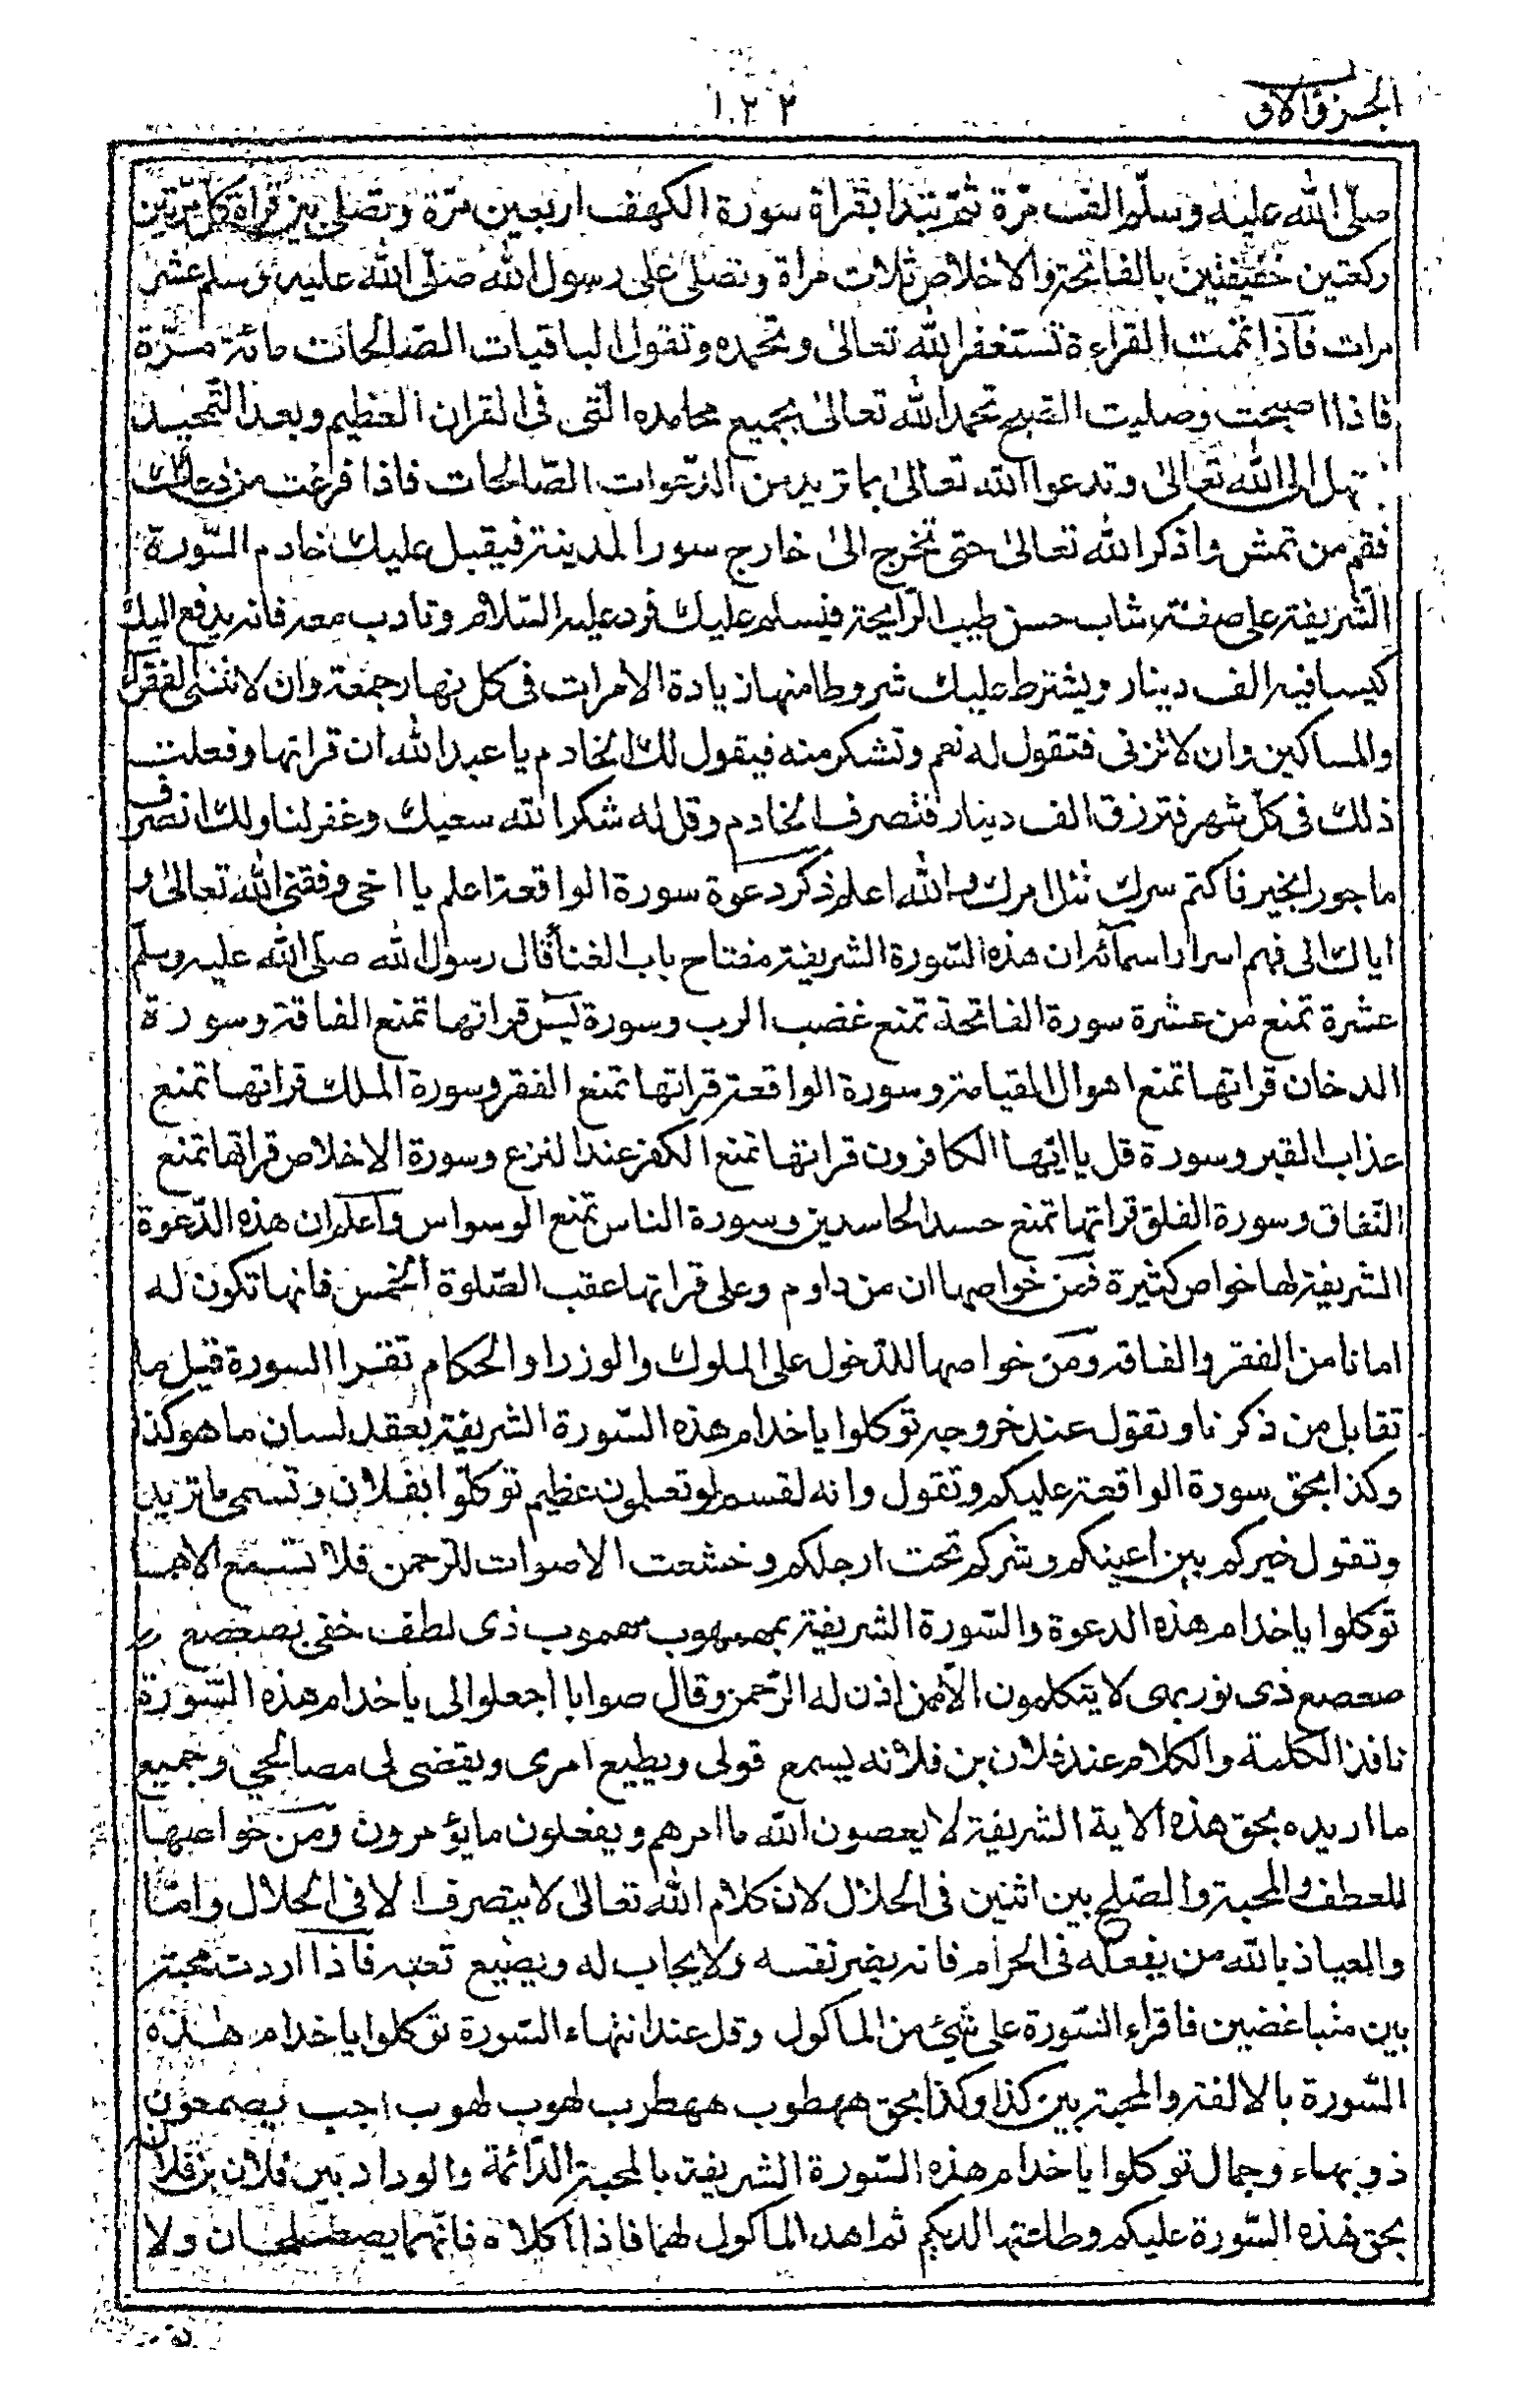 الجزؤ الاول
١٢٢
صلى الله عليه وسلم الف مرة ثم تبتدا بقراة سورة الكهف اربعين مرة وتصلى بين قراة كل مرتين
ركعتين خفيفتين بالفاتحة والاخلاص ثلاث مراة وتصلى على رسول الله صلى الله عليه وسلم عشر
مرات فاذا تممت القراءة تستغفر الله تعالى وتحمده وتقول الباقيات الصالحات مائة مرة
فاذا اصبحت وصليت الصبح تحمد الله تعالى بجميع محامده التى فى القران العظيم وبعد التحميد
تبتهل الى الله تعالى وتدعوا الله تعالى بما تريد من الدعوات الصالحات فاذا فرغت من دعائك
فقم من تمش واذكر الله تعالى حتى تخرج الى خارج سور المدينة فيقبل عليك خادم السورة
الشريفة على صفة شاب حسن طيب الرايحة فيسلم عليك فرد عليه السلام وتادب معه فانه يدفع اليك
كيسا فيه الف دينار ويشترط عليك شروطا منها زيادة الامرات فى كل نهار جمعة وان لا تنسى الفقرا
والمساكين وان لا تزنى فتقول له نعم وتشكر منه فيقول لك الخادم يا عبد الله ان قراتها وفعلت
ذلك فى كل شهر فترزق الف دينار فتصرف الخادم وقل له شكر الله سعيك وغفر لنا ولك انصرف
ماجورا بخير فاكتم سرك تنل امرك والله اعلم ذكر دعوة سورة الواقعة اعلم يا اخى وفقنى الله تعالى و
اياك الى فهم اسرار اسمائه ان هذه السورة الشريفة مفتاح باب الغنا قال رسول الله صلى الله عليه وسلم
عشرة تمنع من عشرة سورة الفاتحة تمنع غضب الرب وسورة يس قراتها تمنع الفاقة وسورة
الدخان قراتها تمنع اهوال القيامة وسورة الواقعة قراتها تمنع الفقر وسورة الملك قراتها تمنع
عذاب القبر وسورة قل يا ايها الكافرون قراتها تمنع الكفر عند النزع وسورة الاخلاص قراتها تمنع
النفاق وسورة الفلق قراتها تمنع حسد الحاسدين وسورة الناس تمنع الوسواس واعلم ان هذه الدعوة
الشريفة لها خواص كثيرة فمن خواصها ان من داوم وعلى قراتها عقب الصلوة الخمس فانها تكون له
امانا من الفقر والفاقه ومن خواصها للدخول على الملوك والوزرا والحكام تقرا السورة قبل ما
تقابل من ذكرنا وتقول عند خروجه توكلوا يا خدام هذه السورة الشريفة بعقد لسان ما هو كذا
وكذا بحق سورة الواقعة عليكم وتقول وانه لقسم لو تعلمون عظيم توكلوا بفلان وتسمى ما تريد
وتقول خيركم بين اعينكم وشركم تحت ارجلكم وخشعت الاصوات للرحمن فلا تسمع الا همسا
توكلوا يا خدام هذه الدعوة والسورة الشريفة بمهبهوب مهموب ذى لطف خفى بصعصع
صعصع ذى نور بهى لا يتكلمون الا من اذن له الرحمن وقال صوابا اجعلوا لى يا خدام هذه السورة
نافذ الكلمة والكلام عند فلان بن فلانه يسمع قولى ويطيع امرى ويقضى لى مصالحي وجميع
ما اريده بحق هذه الاية الشريفة لا يعصون الله ما امرهم ويفعلون ما يؤمرون ومن خواصها
للعطف والمحبة والصلح بين اثنين فى الحلال لان كلام الله تعالى لا يتصرف الا فى الحلال واما
والعياذ بالله من يفعله فى الحرام فانه يضر نفسه ولا يجاب له ويضيع تعبه فاذا اردت محبة
بين متباغضين فاقراء السورة على شئ من الماكول وقل عند انتهاء السورة توكلوا يا خدام هذه
السورة بالالفة والمحبة بين كذا وكذا بحق مهطوب مهطرب لهوب لهوب اجب يصمعون
ذو بهاء وجمال توكلوا يا خدام هذه السورة الشريفة بالمحبة الدائمة والوداد بين فلان بن فلان
بحق هذه السورة عليكم وطاعتها لديكم ثم اهد الماكول لهما فاذا اكلاه فانهما يصطلحان ولا